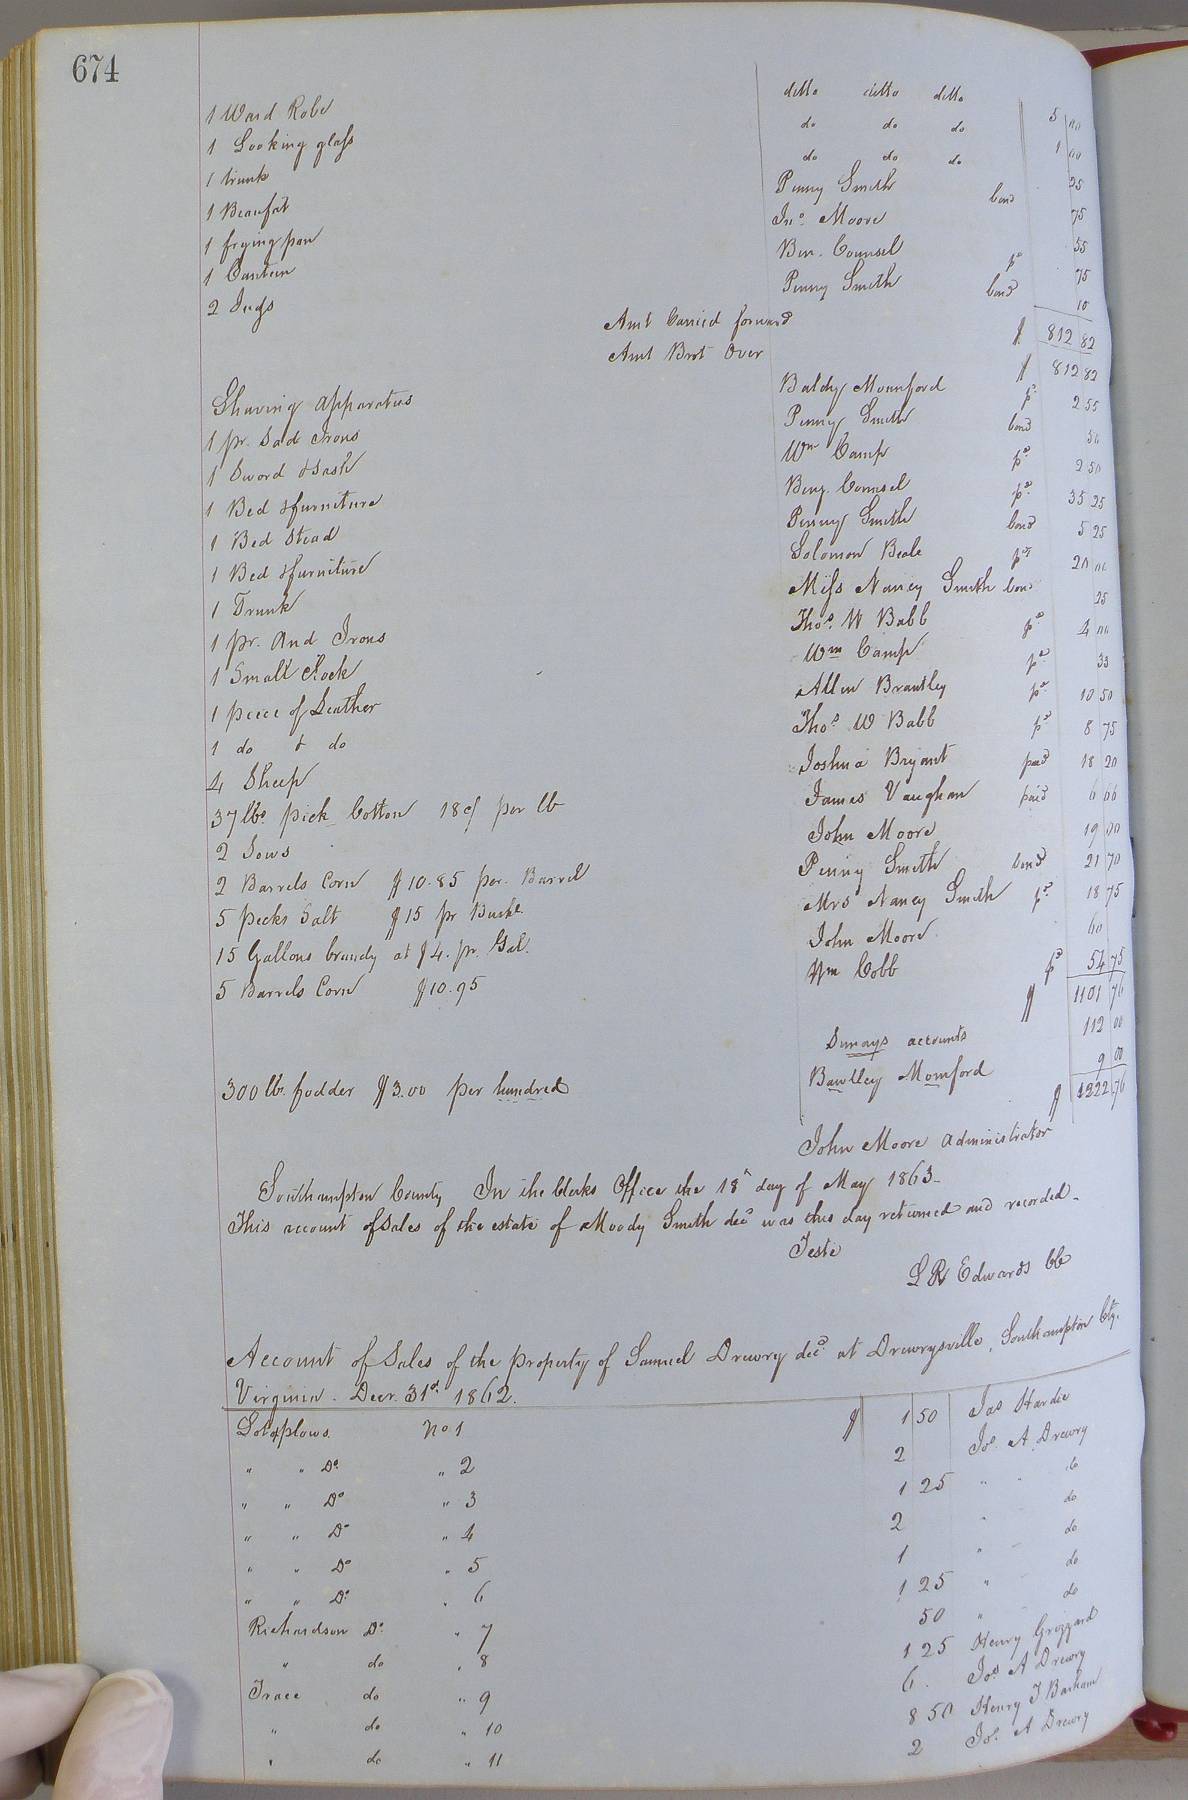 674
1 Ward Robe ditto ditto ditto 5 00
1 Looking glass do do do 1 00
1 trunk do do do 25
1 Beaufat Penny Smith bond 75
1 frying pan Jno. Moore 55
1 Canteen Ben. Counsel pd 75
2 Jugs Penny Smith bond 10
Amt Carried forward $ 812 82
Amt Brot Over $ 812 82
Shaving apparatus Baldy Mounford pd 2 55
1 pr. Sad Irons Penny Smith bond 50
1 Sword & Sash Wm Camp pd 2 50
1 Bed & furniture Benj. Counsel pd 35 25
1 Bed Stead Penny Smith bond 5 25
1 Bed & furniture Solomon Beale pd 20 00
1 Trunk Miss Nancy Smith bond 25
1 pr. And Irons Thos. W Babb pd 4 00
1 Small Clock Wm Camp pd 33
1 piece of Leather Allen Brantley pd 10 50
1 do & do Thos. W Babb pd 8 75
4 Sheep Joshua Bryant paid 18 20
37 lbs. pick Cotton 18c/ per lb James Vaughan paid 6 66
2 Sows John Moore 19 00
2 Barrels Corn $10.85 per. Barrel Penny Smith bond 21 70
5 pecks Salt $15 pr Bushl. Mrs Nancy Smith pd 18 75
15 Gallons brandy at $4. pr. Gal. John Moore 60
5 Barrels Corn $10.95 Wm Cobb pd 54 75
$ 1101 76
Dunays accounts 112 00
300 lb. fodder $3.00 per hundred Bawlley Momford 9 00
$ 1222 76
John Moore Administrator
Southampton County In the Clerks Office the 18th day of May 1863-
This account of Sales of the estate of Moody Smith decd was this day returned and recorded-
Teste
L R Edwards Clk
Account of Sales of the property of Samuel Drewry decd at Drewrysville, Southampton Cty.
Virginia. Decr. 31st. 1862.
Lot of plows. No 1 $ 1 50 Jas Hardie
" " Do. " 2 2 Jos. A Drewry
" " Do " 3 1 25 " " do
" " Do " 4 2 " do
" " Do " 5 1 " do
" " Do. " 6 1 25 " do
Richardson Do. " 7 50 " do
" do " 8 1 25 Henry Grizzard
Trace do " 9 6. Jos A Drewry
" do " 10 8 50 Henry J Barham
" do " 11 2 Jos. A Drewry